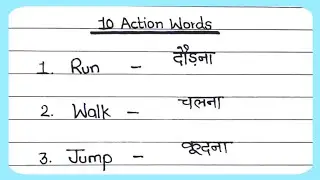 10 Action Words
1. Run - दौड़ना
2. Walk - चलना
3. Jump - कूदना